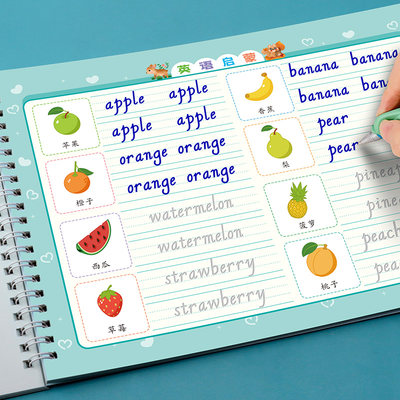 英语启蒙
apple apple
apple apple
苹果
orange orange
orange orange
橙子
watermelon
watermelon
西瓜
strawberry
strawberry
草莓
banana banana
banana banana
香蕉
pear
pear
梨
pineap
pineap
菠萝
peach
peach
桃子